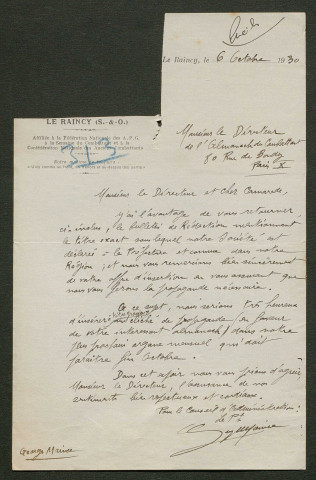 Le Raincy, le 6 Octobre 1930
LE RAINCY (S.-&-O.)
Affiliée à la Fédération Nationale des A.P.G.
à la Semaine du Combattant et à la
Confédération Nationale des Anciens Combattants
Monsieur le Directeur
de l'Almanach du Combattant
80 Rue de Bondy
Paris X
Monsieur le Directeur et cher Camarade,
J'ai l'avantage de vous retourner,
ci-inclus, le bulletin de Rédaction mentionnant
le titre exact sous lequel notre Société est
déclarée à la Préfecture et connue dans notre
Région, et nous vous remercions bien sincèrement
de votre offre d'insertion en vous assurant que
nous vous ferons la propagande nécessaire.
A ce sujet, nous serions très heureux
d'insérer un cliché de propagande en faveur
de votre intéressant almanach dans notre
prochain organe mensuel qui doit
paraître fin Octobre.
Dans cet espoir nous vous prions d'agréer
Monsieur le Directeur, l'assurance de nos
sentiments bien respectueux et cordiaux.
Pour le Conseil d'Administration
le Pt
Georges Maince